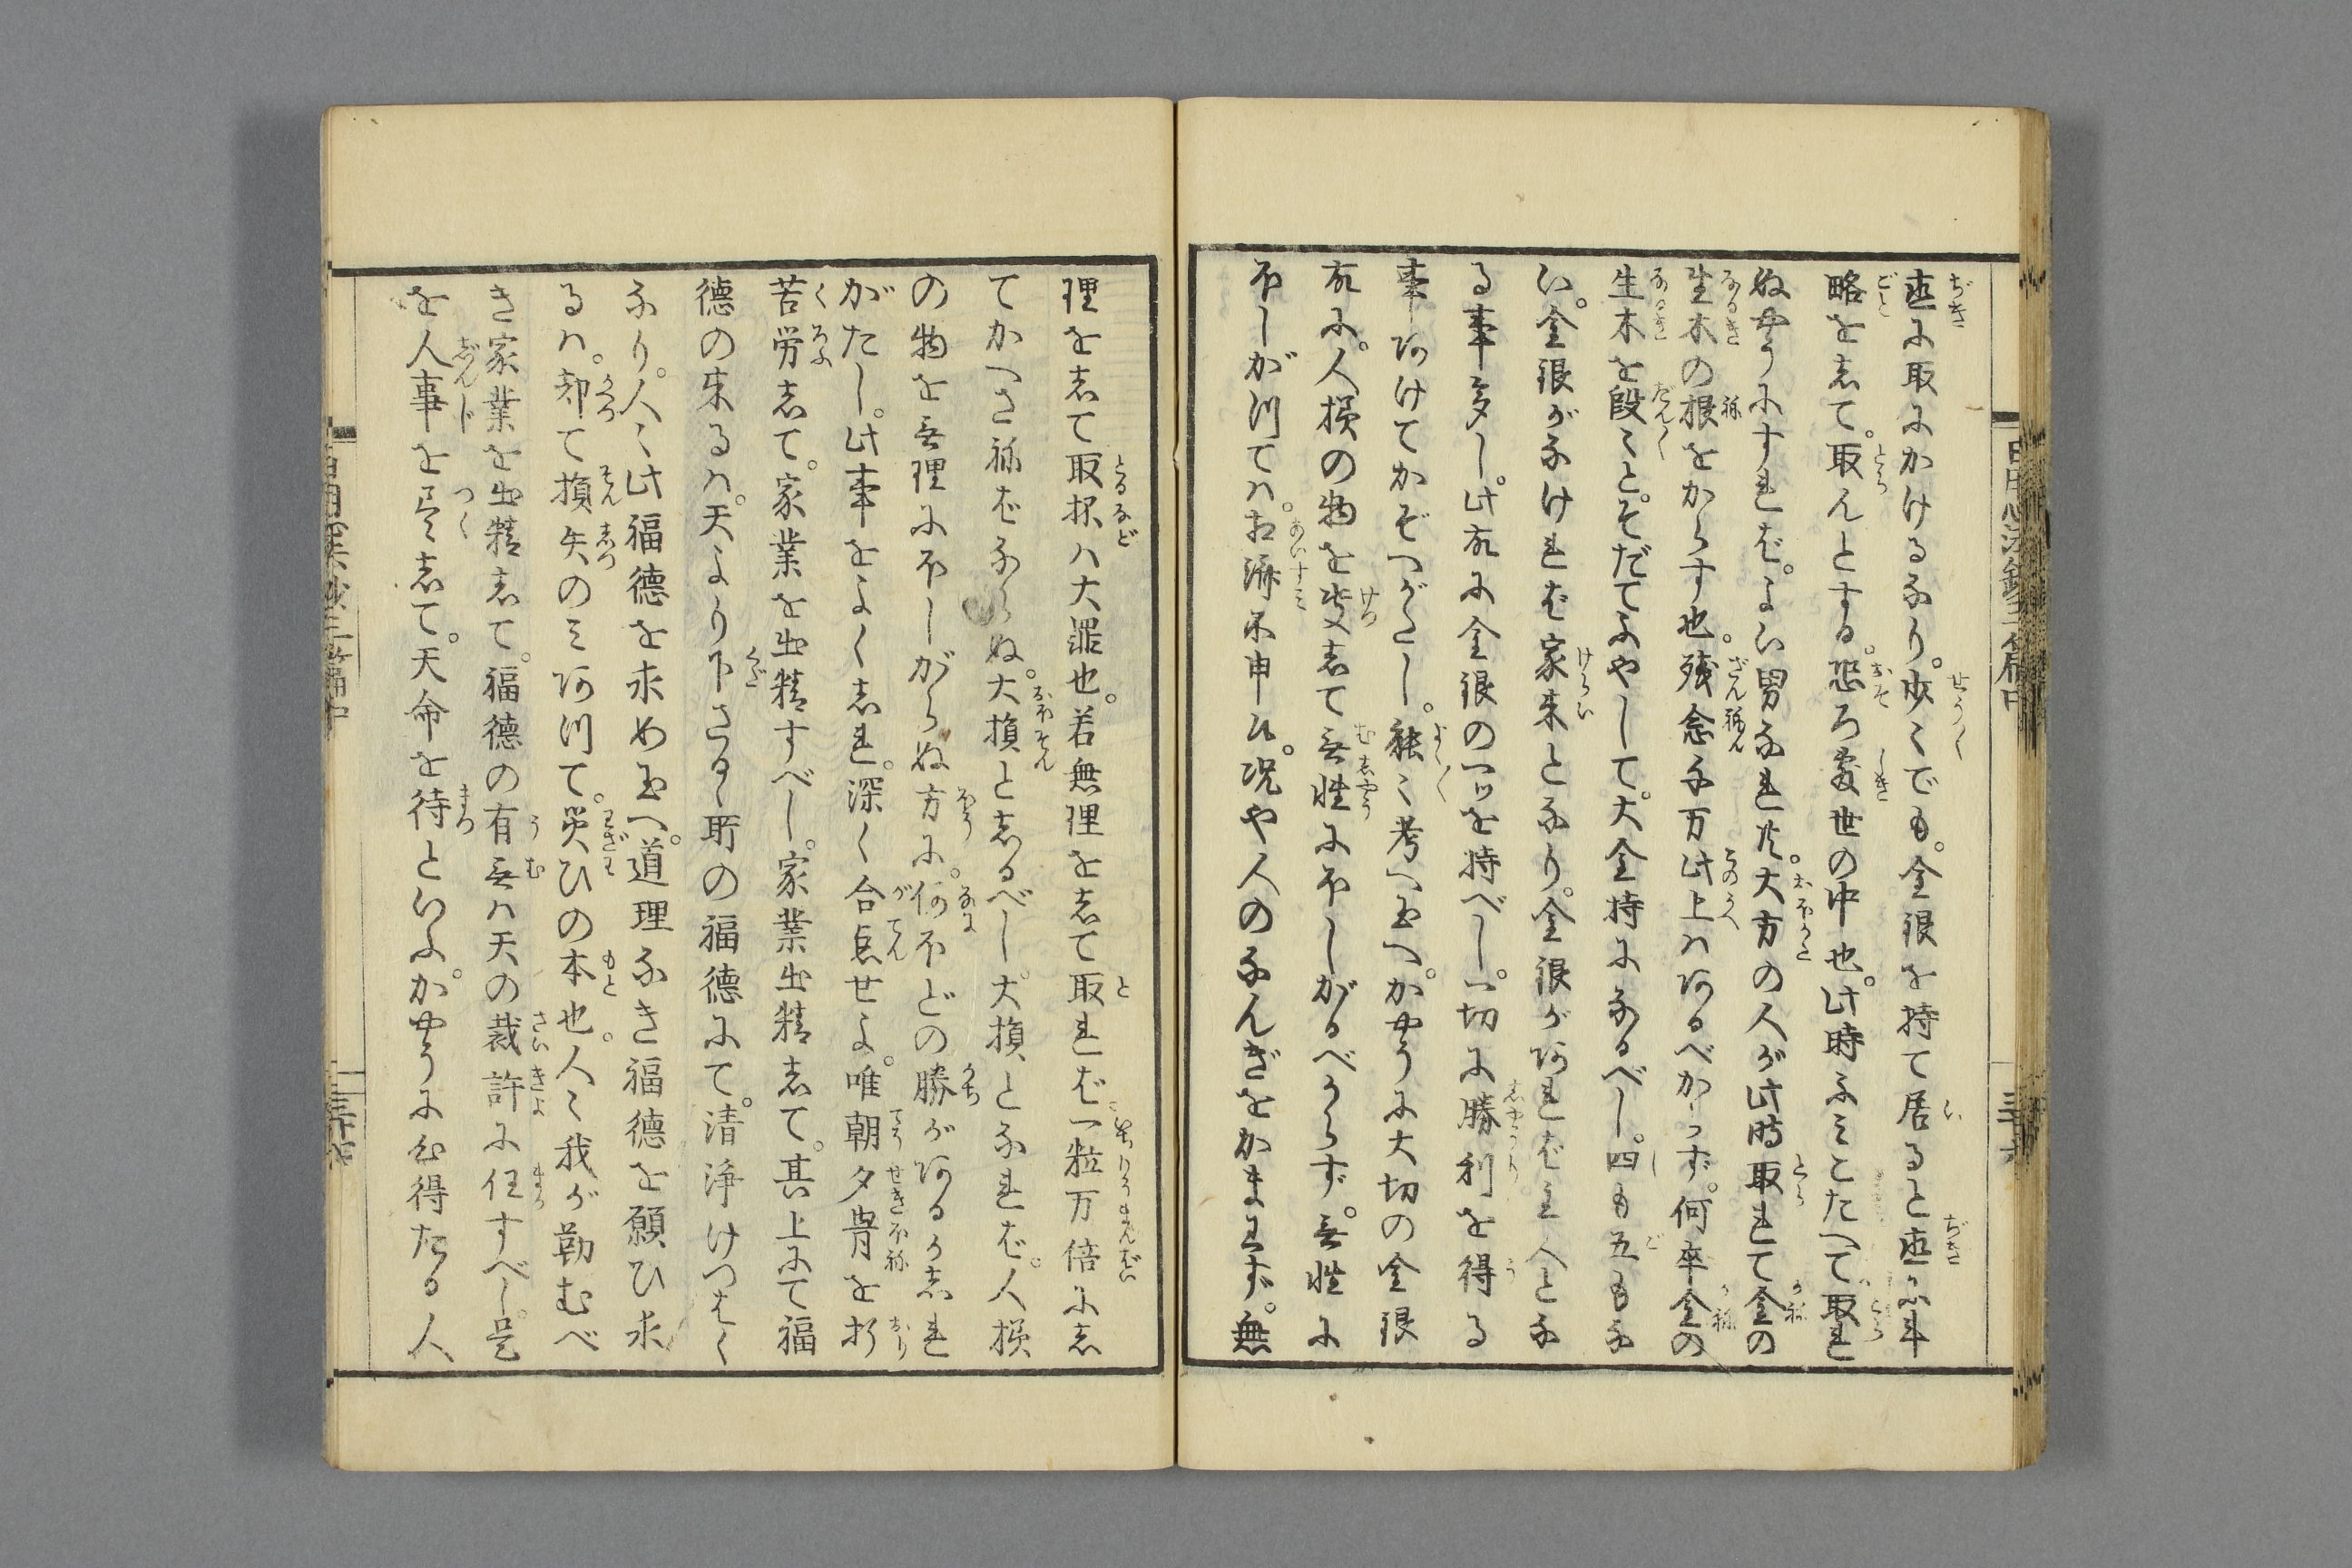 直に取にかけるなり。少〻でも。金銀を持て居ると直に計
略をして。取んとする。恐ろ敷世の中也。此時ふミこたへて取れ
ぬやうにすれば。よい男なれ共。大方の人が此時取れて金の
生木の根をからす也。残念千万此上ハあるべからず。何卒金の
生木を段〻と。そだてふやして。大金持になるべし。四も五もな
い。金銀がなければ家来となり。金銀があれば主人とな
る事多し。此故に金銀の一ツを持べし。一切に勝利を得る
事あげてかぞへがたし。能〻考へ玉へ。かやうに大切の金銀
故に。人損の物を決して無性にほしがるべからず。無性に
ほしがつてハ。相済不申候。況や人のなんぎをかまはず。無
理をして取抔ハ大罪也。若無理をして取れば一粒万倍にし
てかへさねばならぬ。大損としるべし。大損となれば。人損
の物を無理にほしがらぬ方に。何ほどの勝があるかしれ
がたし。此事をよくしれ。深く合点せよ。唯朝夕脊骨を折
苦労して。家業を出精すべし。家業出精して。其上にて福
徳の来るハ。天より下さるゝ所の福徳にて。清浄けつはく
なり。人〻此福徳を求め玉へ。道理なき福徳を願ひ求
るハ。却て損失のミあつて。災ひの本也。人〻我が勤むべ
き家業を出精して。福徳の有無ハ天の裁許に任すべし。是
を人事を尽して。天命を待といふ。かやうに心得たる人